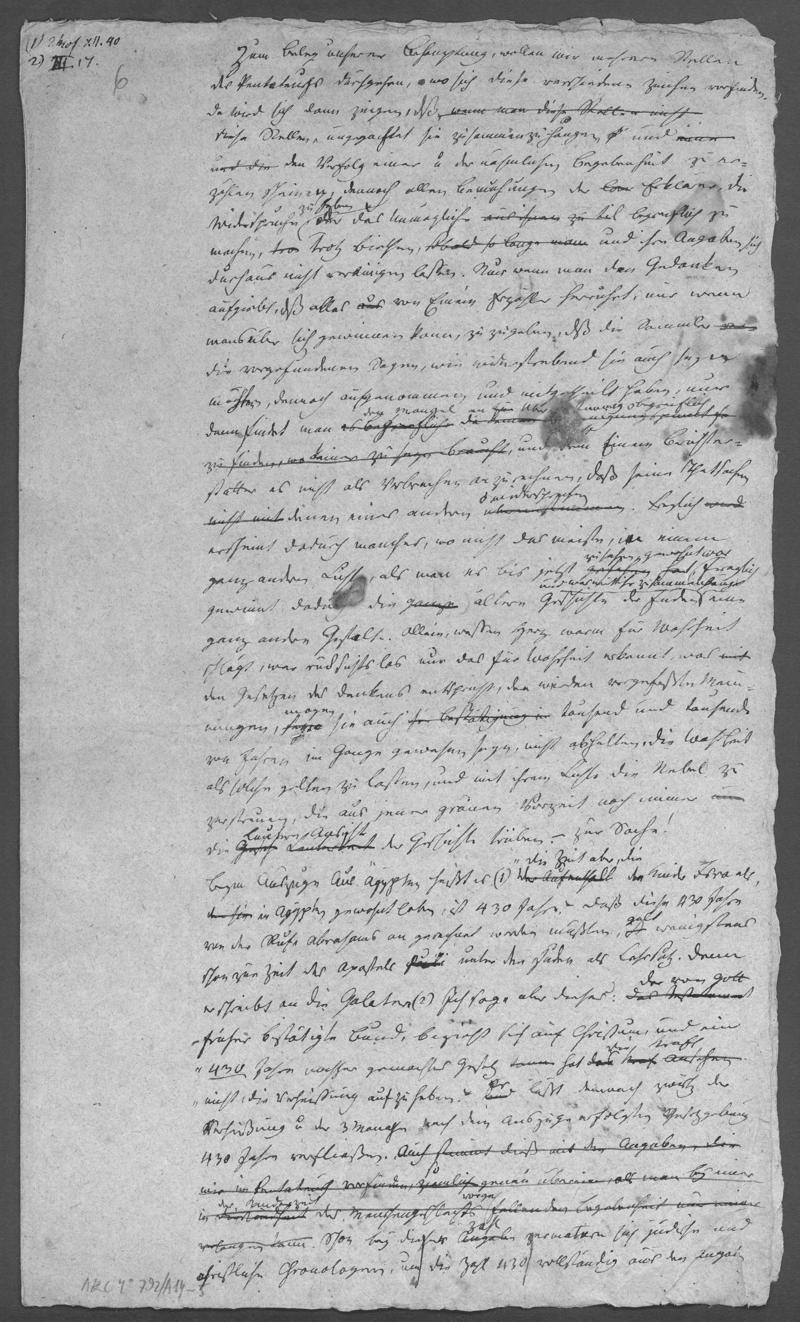 (1) 2 Mos XII. 40
2) III. 17.
6
Zum Beleg unserer Behauptung, wollen wir mehrere Stellen
des Pentateuchs durchgehen, wo sich diese verschiedene Zeichen vorfinden.
Da wird sich dann zeigen, daß, wenn man diese Stellen nicht
diese Stellen, ungeachtet sie zusammenzuhängen und
und die den Verfolg einer u der nähmlichen Begebenheit zu er-
zählen scheinen, dennoch allen Bemühungen der Erklärer, die
Widersprüche zu heben oder das Unmögliche begreiflich zu
machen, Trotz biethen, und ihre Angaben sich
durchaus nicht vereinigen lassen. Nur wenn man den Gedanken
aufgiebt, daß alles aus von Einem Erzähler herrührt; nur wenn
mans über sich gewinnen kann, zuzugeben, daß die Sammler
die vorgefundenen Sagen, wie widerstrebend sie auch seyn
mochten, dennoch aufgenommen und mitgetheilt haben; nur
dann findet man den Mangel an
zu finden, wo keiner zu seyn braucht, und Einem Bericht-er-
statter es nicht als Verbrechen anzurechnen, daß seine Thatsachen
nicht mit denen eines andern widersprechen. Freylich
erscheint dadurch manches, wo nicht das meiste, in einem
ganz andern Lichte, als man es bis jetzt zu sehen gewohnt war, freylich
gewinnt dadurch die ganze ältere Geschichte der Juden eine
ganz andere Gestalt. Allein, wessen Herz warm für Wahrheit
schlägt, wer rücksichtslos nur das für Wahrheit erkennt, was mit
den Gesetzen des Denkens entspricht, den werden vorgefaßte Mein-
nungen, mögen sie auch tausend und tausende
von Jahren im Gange gewesen seyn, nicht abhalten, die Wahrheit
als solche gelten zu lassen, und mit ihrem Lichte die Nebel zu
zerstreuen, die aus jener grauen Vorzeit noch immer
die Ansicht der Geschichte trüben. – Zur Sache!
Beym Auszuge aus Ägypten heißt es (1) „die Zeit aber, die die Kinder Israels,
in Ägypten gewohnt haben, ist 430 Jahre. – Daß diese 430 Jahre
von der Rufe Abrahams an gerechnet werden müßten, galt wenigstens
schon zur Zeit des Apostels Pauli unter den Juden als Lehrsatz. Denn
er schreibt an die Galater (2) Ich sage aber dieses: der von Gott
„früher bestätigte Bund, bezieht sich auf Christum, und ein
„430 Jahre nachher gemachtes Gesetz hat die Kraft
„nicht, die Verheißung aufzuheben." Er läßt demnach zwischen der
Verheißung u der 3 Monath nach dem Auszuge erfolgten Gesetzgebung
430 Jahre verfließen. Auch stimmt dieß mit den Angaben, die
wir im Pentateuch vorfinden, ziemlich genau überein, als man bey einer
in der Kinderzeit des Menschengeschlechts fallenden Begebenheit nur immer
verlangen kann. Schon bey dieser Zahl jüdische und
christliche Chronologen, um die Zahl 430 vollständig aus den Angab
ARC 4° 792/A14-5